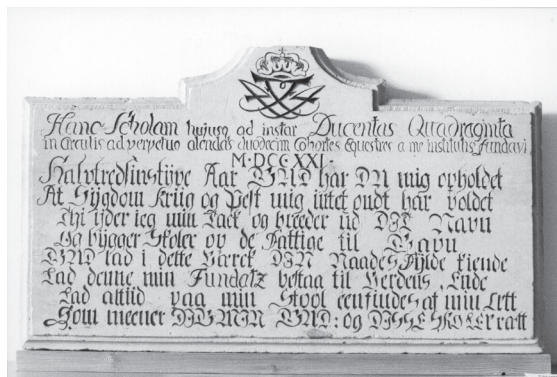 Hanc Scholam hujusq ad instar Ducentas Quadraginta
in Circulis ad perpetuo alendas duodecim Cohortes Equestres a me institutis Fundavi
M·DCC·XXI·
Halvtredsinstyve Aar GUD har DU mig opholdet
At Sygdom Kriig og Pest mig intet ondt har voldet
Thi yder ieg min Tack og breeder ud DIT Navn
Og bygger Skoler op de Fattige til Gavn
GUD lad i dette Værck DIN Naades Fylde kiende
Lad denne min Fundatz bestaa til Verdens Ende
Lad altiid paa min Stool een findes af min Ætt
Som meener DIG MIN GUD: og DISSE SKOLER rætt